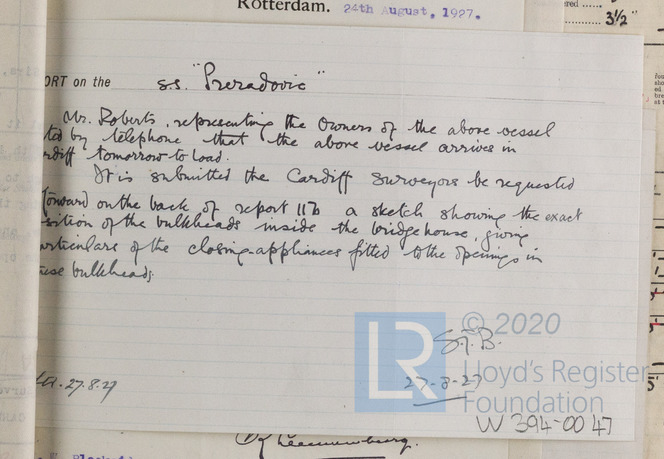 Rotterdam. 24th August, 1927.
3½"
ORT on the s.s. "Preradovic"
Mr. Roberts, representing the Owners of the above vessel
ted by telephone that the above vessel arrives in
rdiff tomorrow to load.
It is submitted the Cardiff Surveyors be requested
forward on the back of report 11b a sketch showing the exact
sition of the bulkheads inside the bridge house, giving
articulars of the closing appliances fitted to the openings in
ese bulkheads.
© 2020
S.F.B.
LR
Lloyd's Register
Foundation
27.8.27
27-8-27
W 394-0047